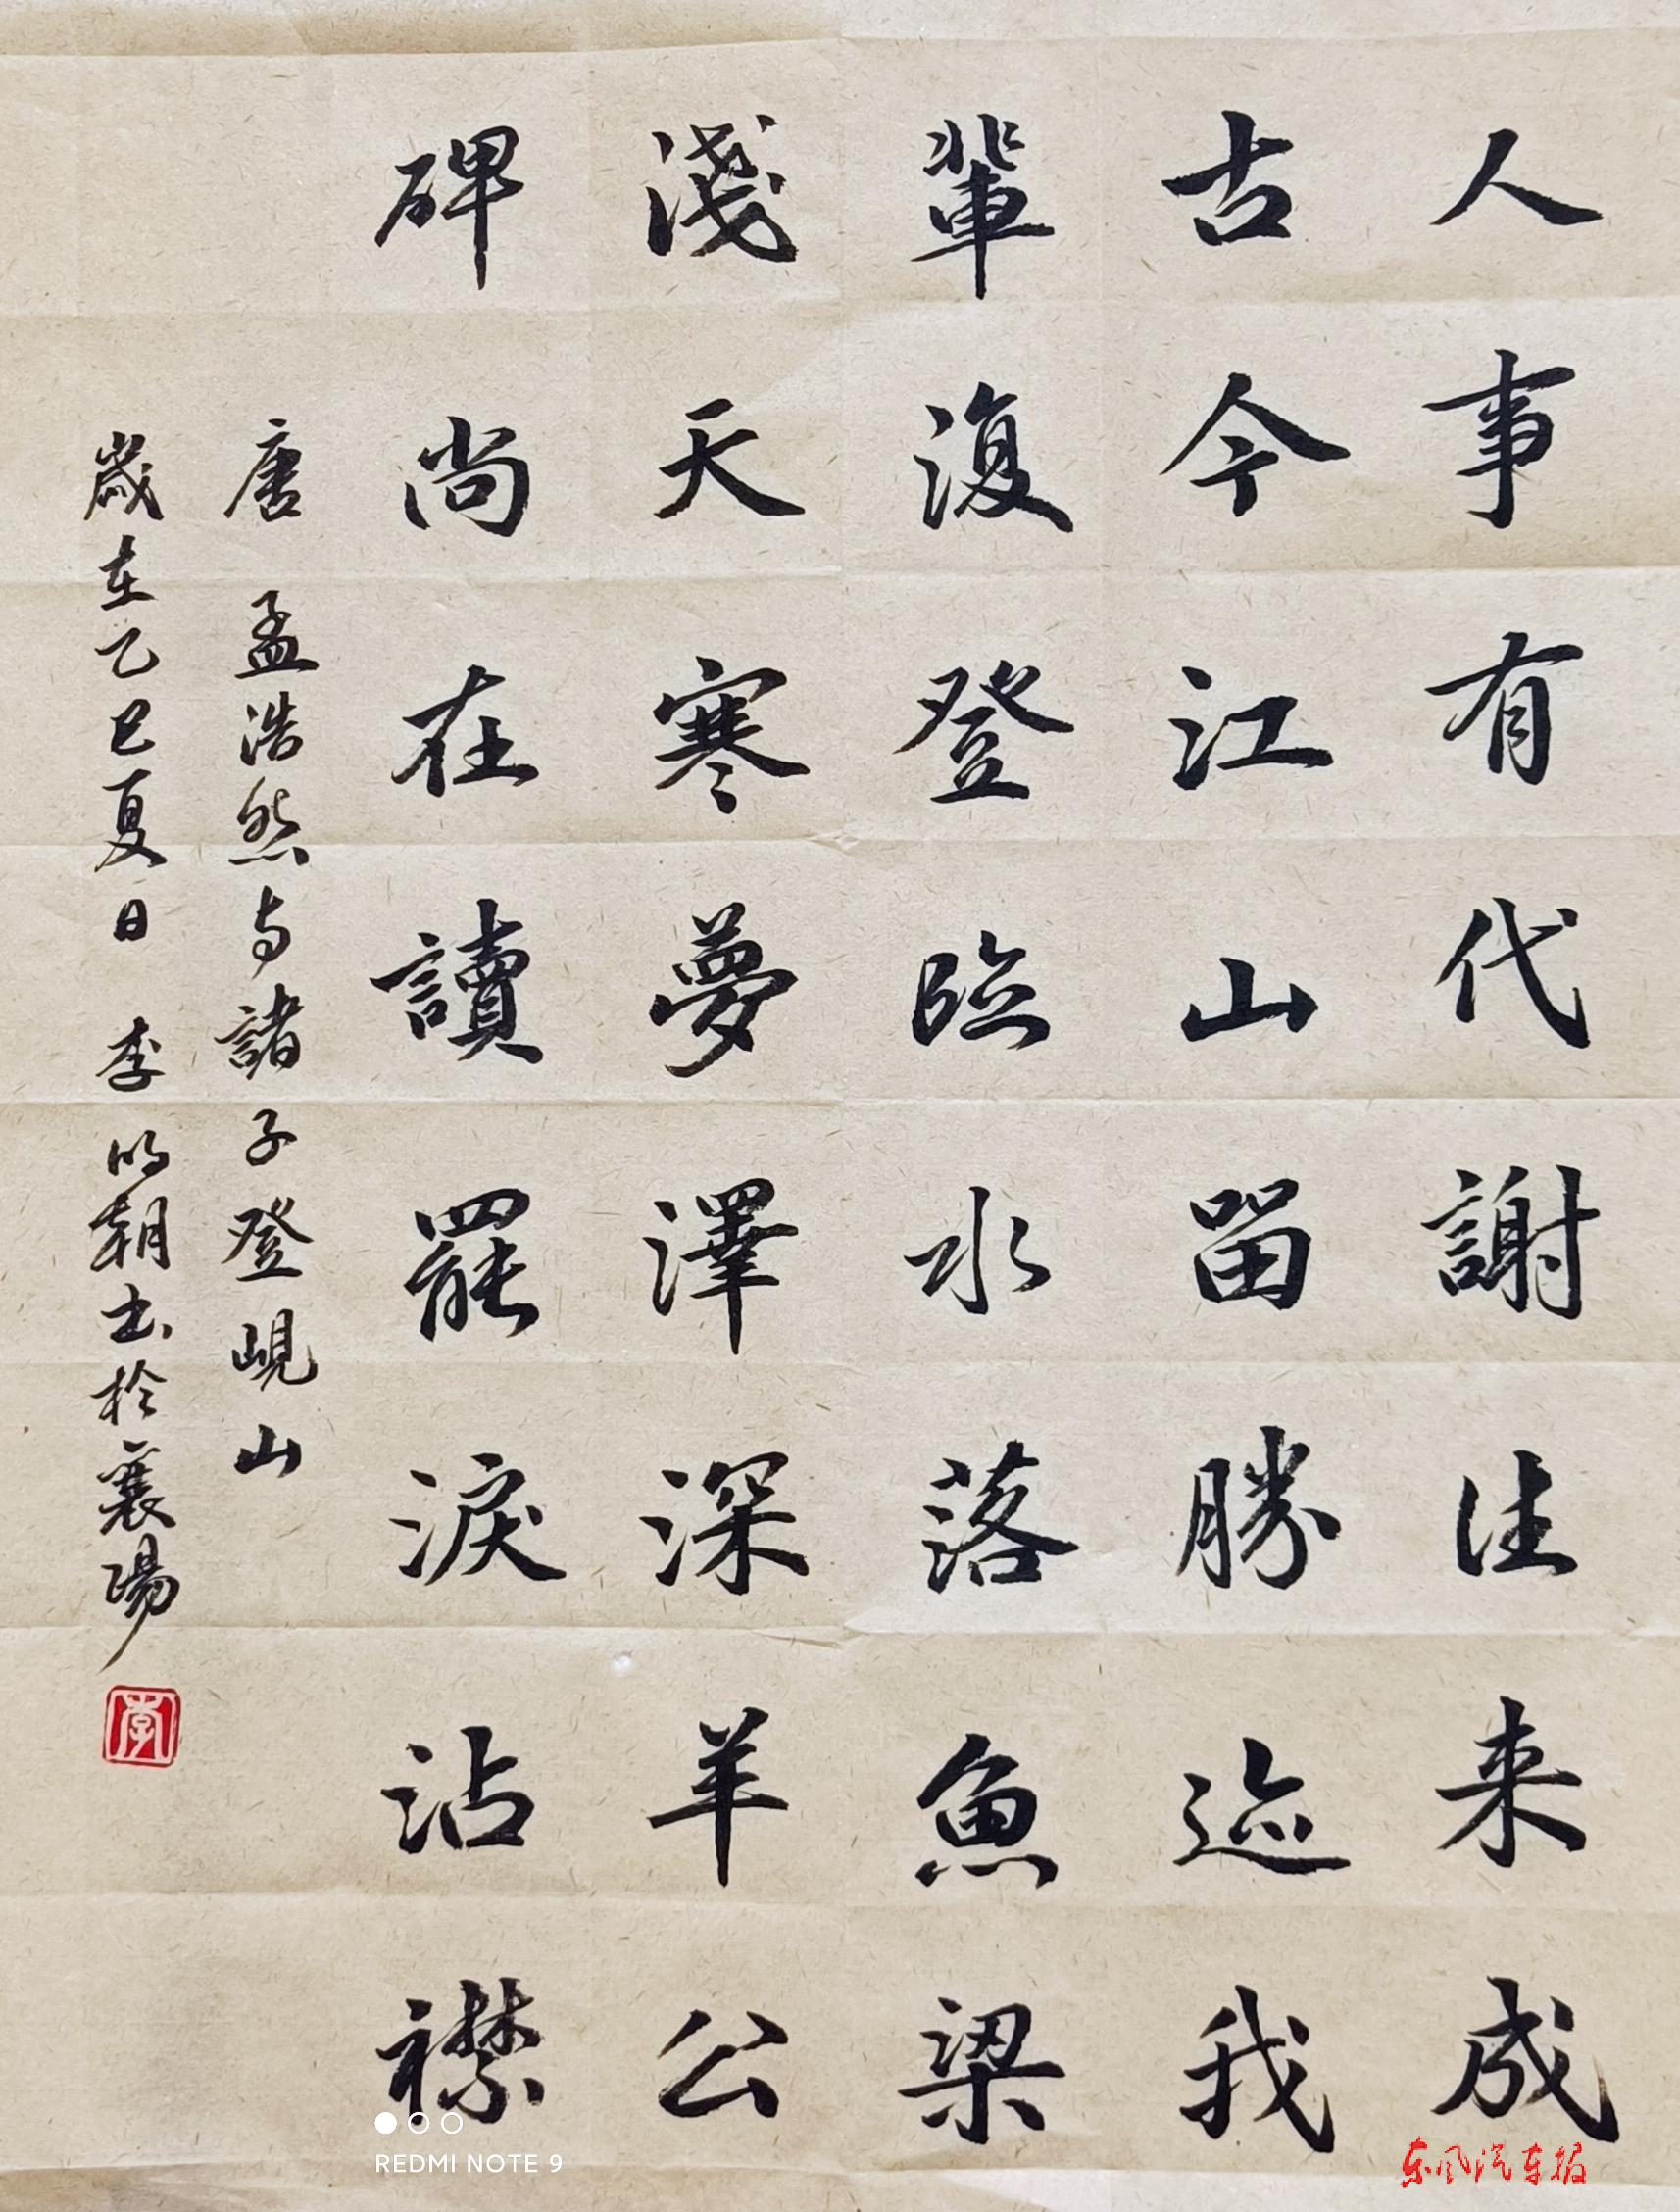 人事有代謝往来成
古今江山留勝迹我
輩復登臨水落魚梁
淺天寒夢澤深羊公
碑尚在讀罷淚沾襟
唐 孟浩然与諸子登峴山
歲在乙巳夏日 李明朝书於襄陽
李
REDMI NOTE 9
东风汽车报